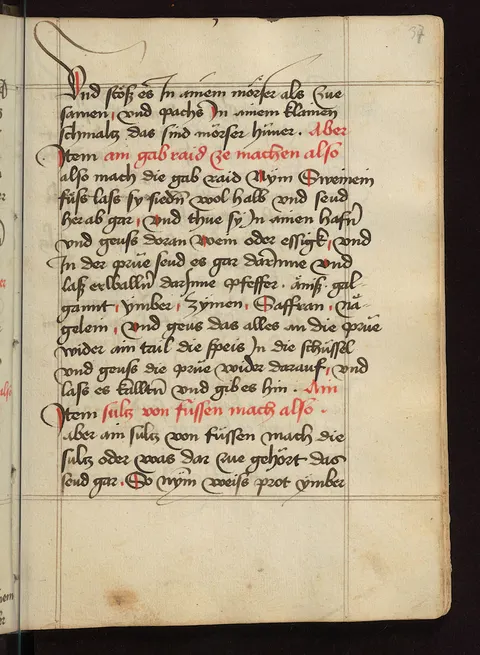 37
Vnd stöß es In ainem mörser als zue
samen, vnd pachs In ainem klainen
schmaltz das sind mörser hüner. Aber
Item ain gab raid ze machen also
also mach die gab raid Nÿm Sweinein
füß lass sy siedn wol halb vnd seud
her ab gar, vnd thue sy In ainen hafn
vnd geuss doran wein oder essigk, vnd
In der prüe seud es gar darInne vnd
laß erwallnn darInne pfeffer. änis. gal-
gannt, ÿmber, Zÿmen, Saffran, nä-
gelein, vnd geus das alles an die prüe
wider ain tail die speis In die schüssel
vnd geuss die prüe wider darauf, vnd
lass es kalltn vnd gib es hin. Ain
Item sultz von füssen mach also.
aber ain sultz von füssen mach die
sultz oder was dar zue gehört das
seud gar. So nÿm weiss prot ÿmber